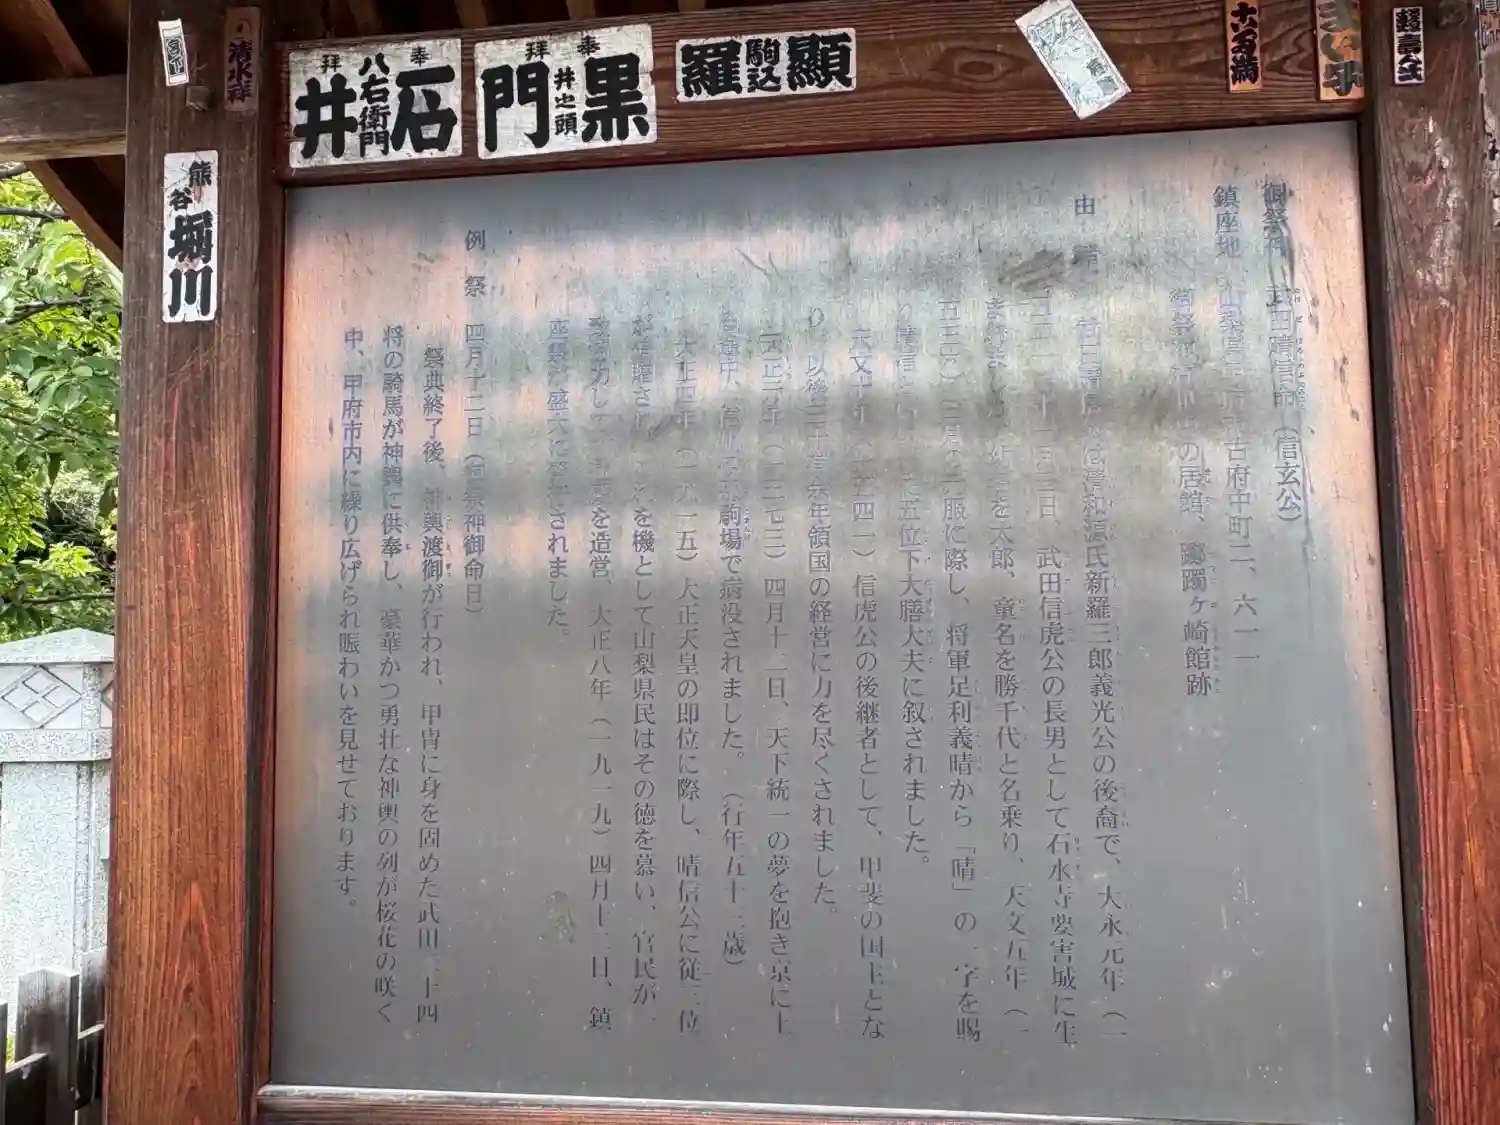 奉拝
石井
八右衛門
奉拝
黒門
井之頭
顯羅
駒込
熊谷
堀川
清水祥
御祭神 武田晴信命(信玄公)
鎮座地 山梨県甲府市古府中町二、六一一
御祭神 の居館、躑躅ヶ崎館跡
由緒 武田晴信公は清和源氏新羅三郎義光公の後裔で、大永元年(一
五二一)十一月三日、武田信虎公の長男として石水寺要害城に生
まれました。 を太郎、童名を勝千代と名乗り、天文五年(一
五三六)三月元服に際し、将軍足利義晴から「晴」の一字を賜
り晴信といい 従五位下大膳大夫に叙されました。
天文十年(一五四一)信虎公の後継者として、甲斐の国主とな
り、以後三十有余年領国の経営に力を尽くされました。
天正元年(一五七三)四月十二日、天下統一の夢を抱き京に上
る途中、信州 駒場で病没されました。(行年五十三歳)
大正四年(一九一五)大正天皇の即位に際し、晴信公に従三位
が追贈され、これを機として山梨県民はその徳を慕い、官民が一
致協力して 社殿を造営、大正八年(一九一九)四月十二日、鎮
座祭が盛大に 行されました。
例祭 四月十二日(御祭神御命日)
祭典終了後、神輿渡御が行われ、甲冑に身を固めた武田二十四
将の騎馬が神輿に供奉し、豪華かつ勇壮な神輿の列が桜花の咲く
中、甲府市内に繰り広げられ賑わいを見せております。